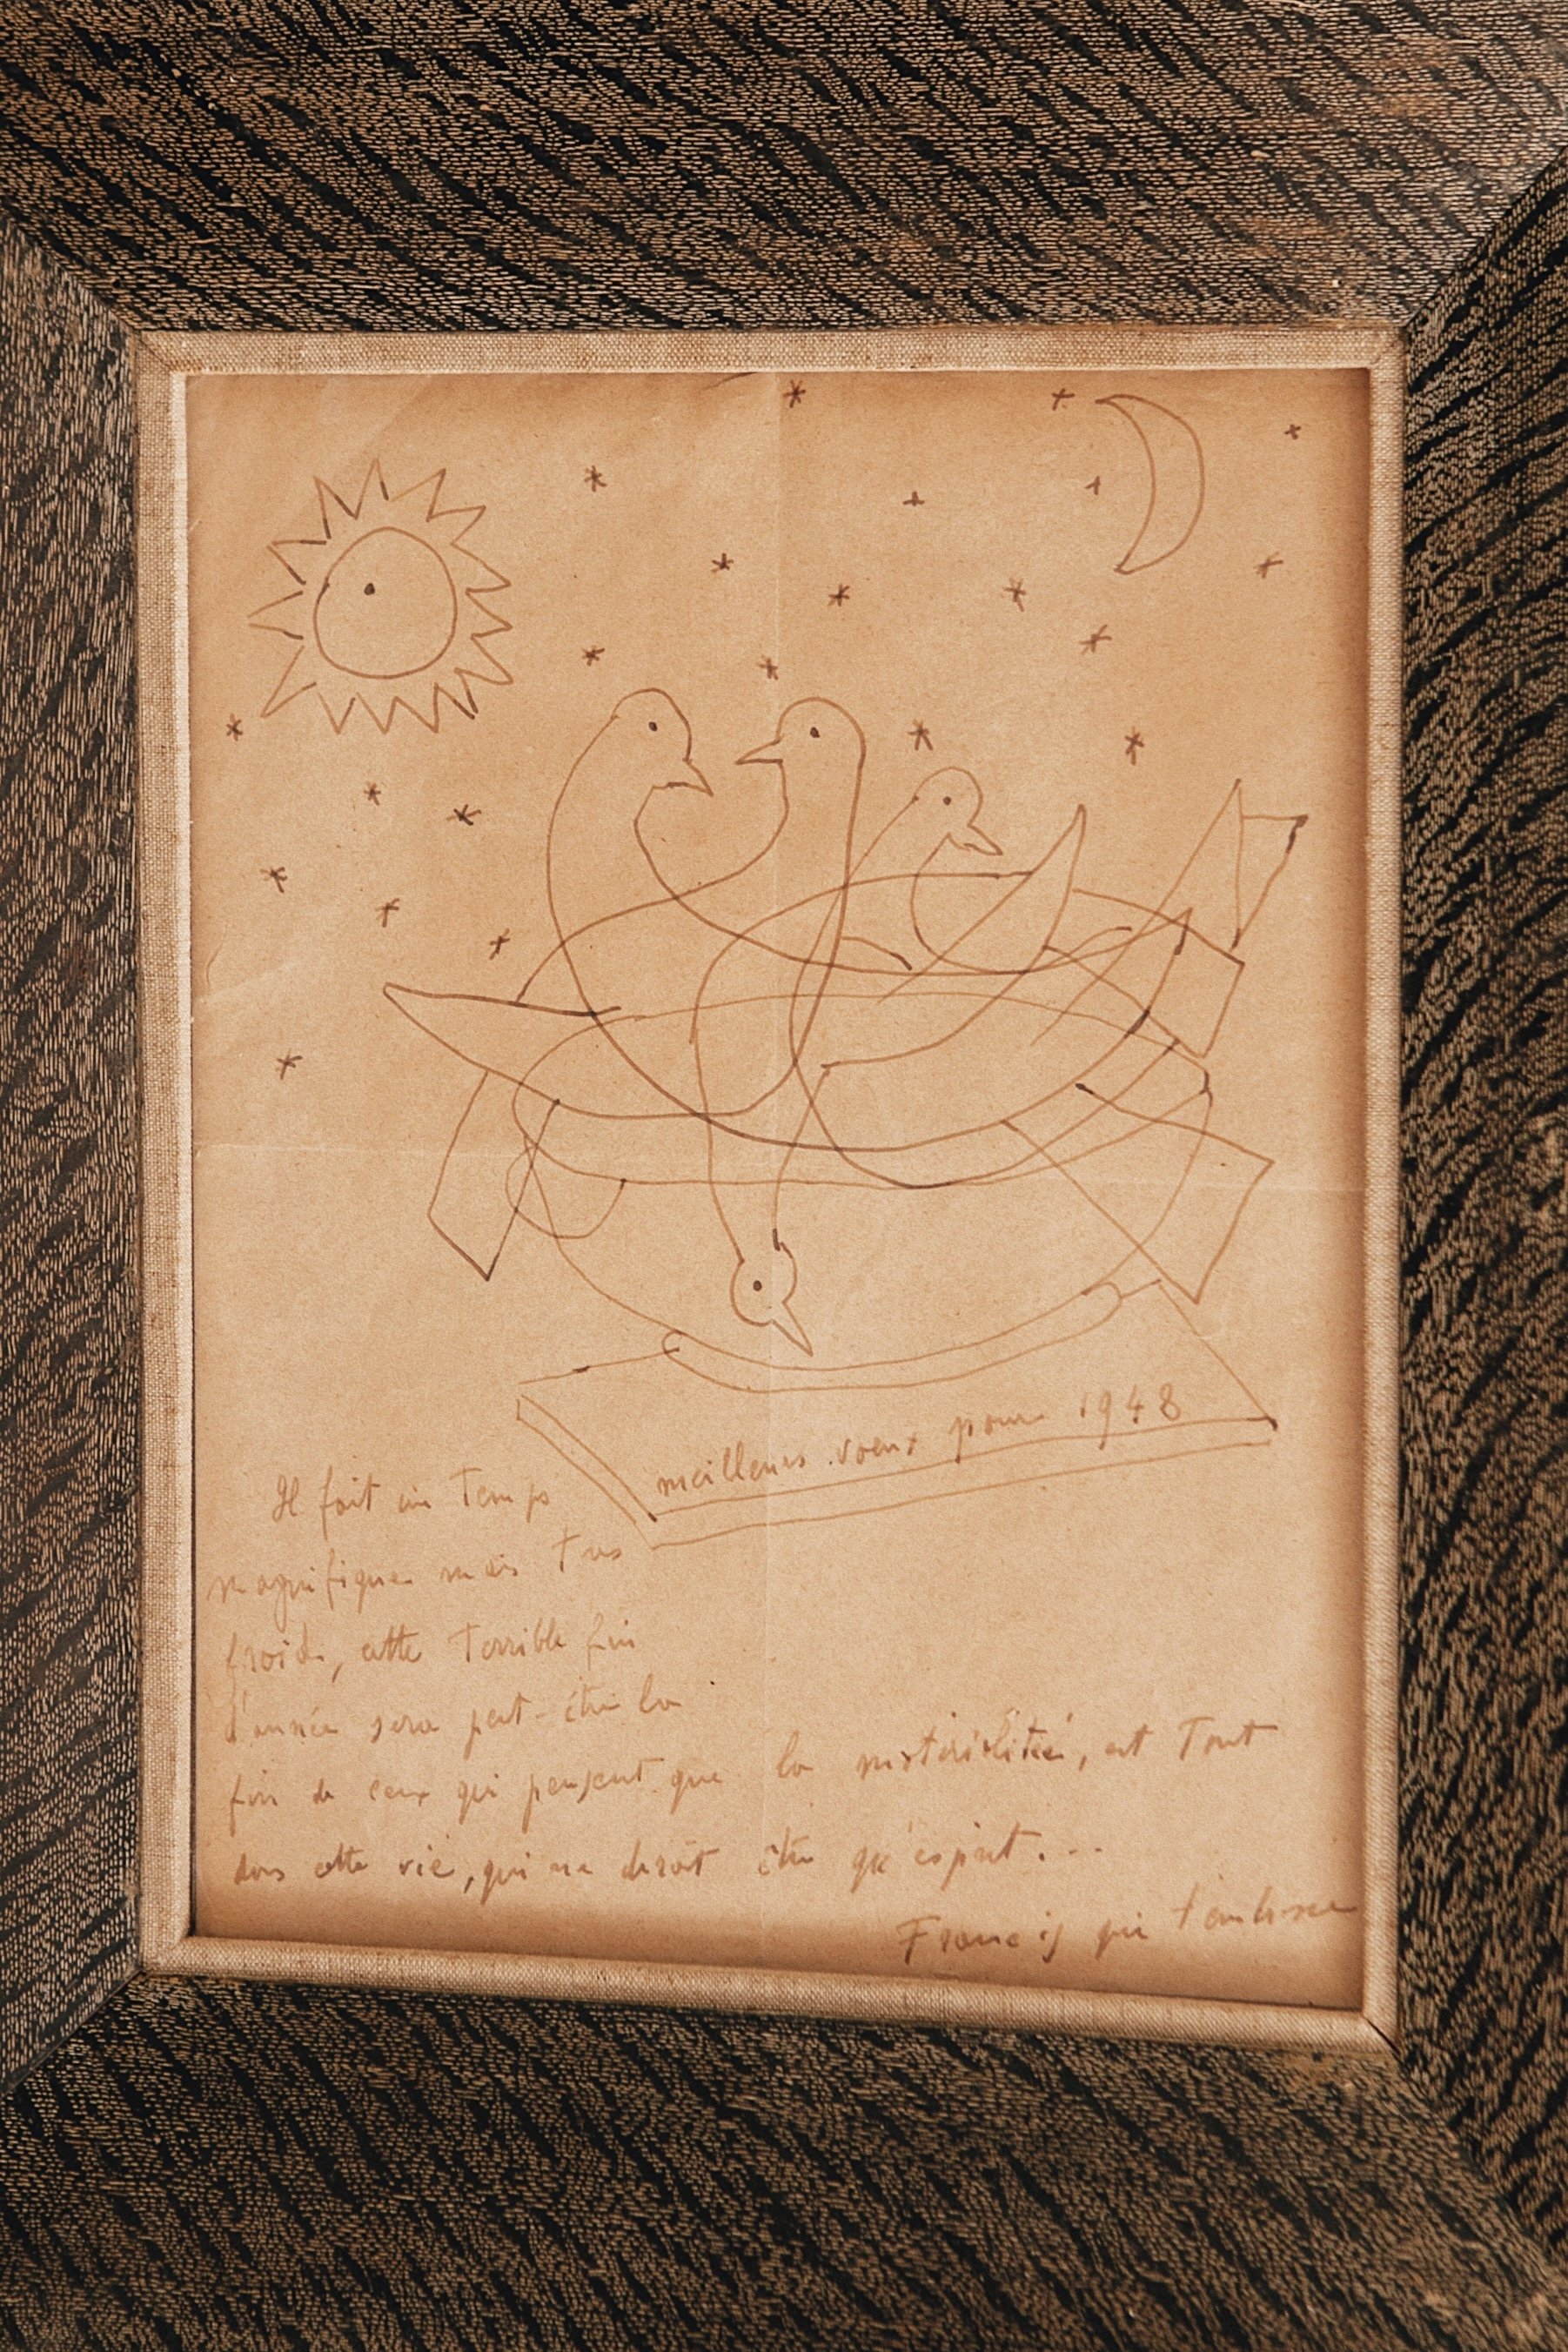 meilleurs voeux pour 1948
Il fait un Temps
magnifique mais Tres
froid, cette Terrible fin
d'année sera peut-être la
fin de ceux qui pensent que la matérialitée, est Tout
dans cette vie, qui ne devrait être qu'esprit...
Francis qui t'embrasse